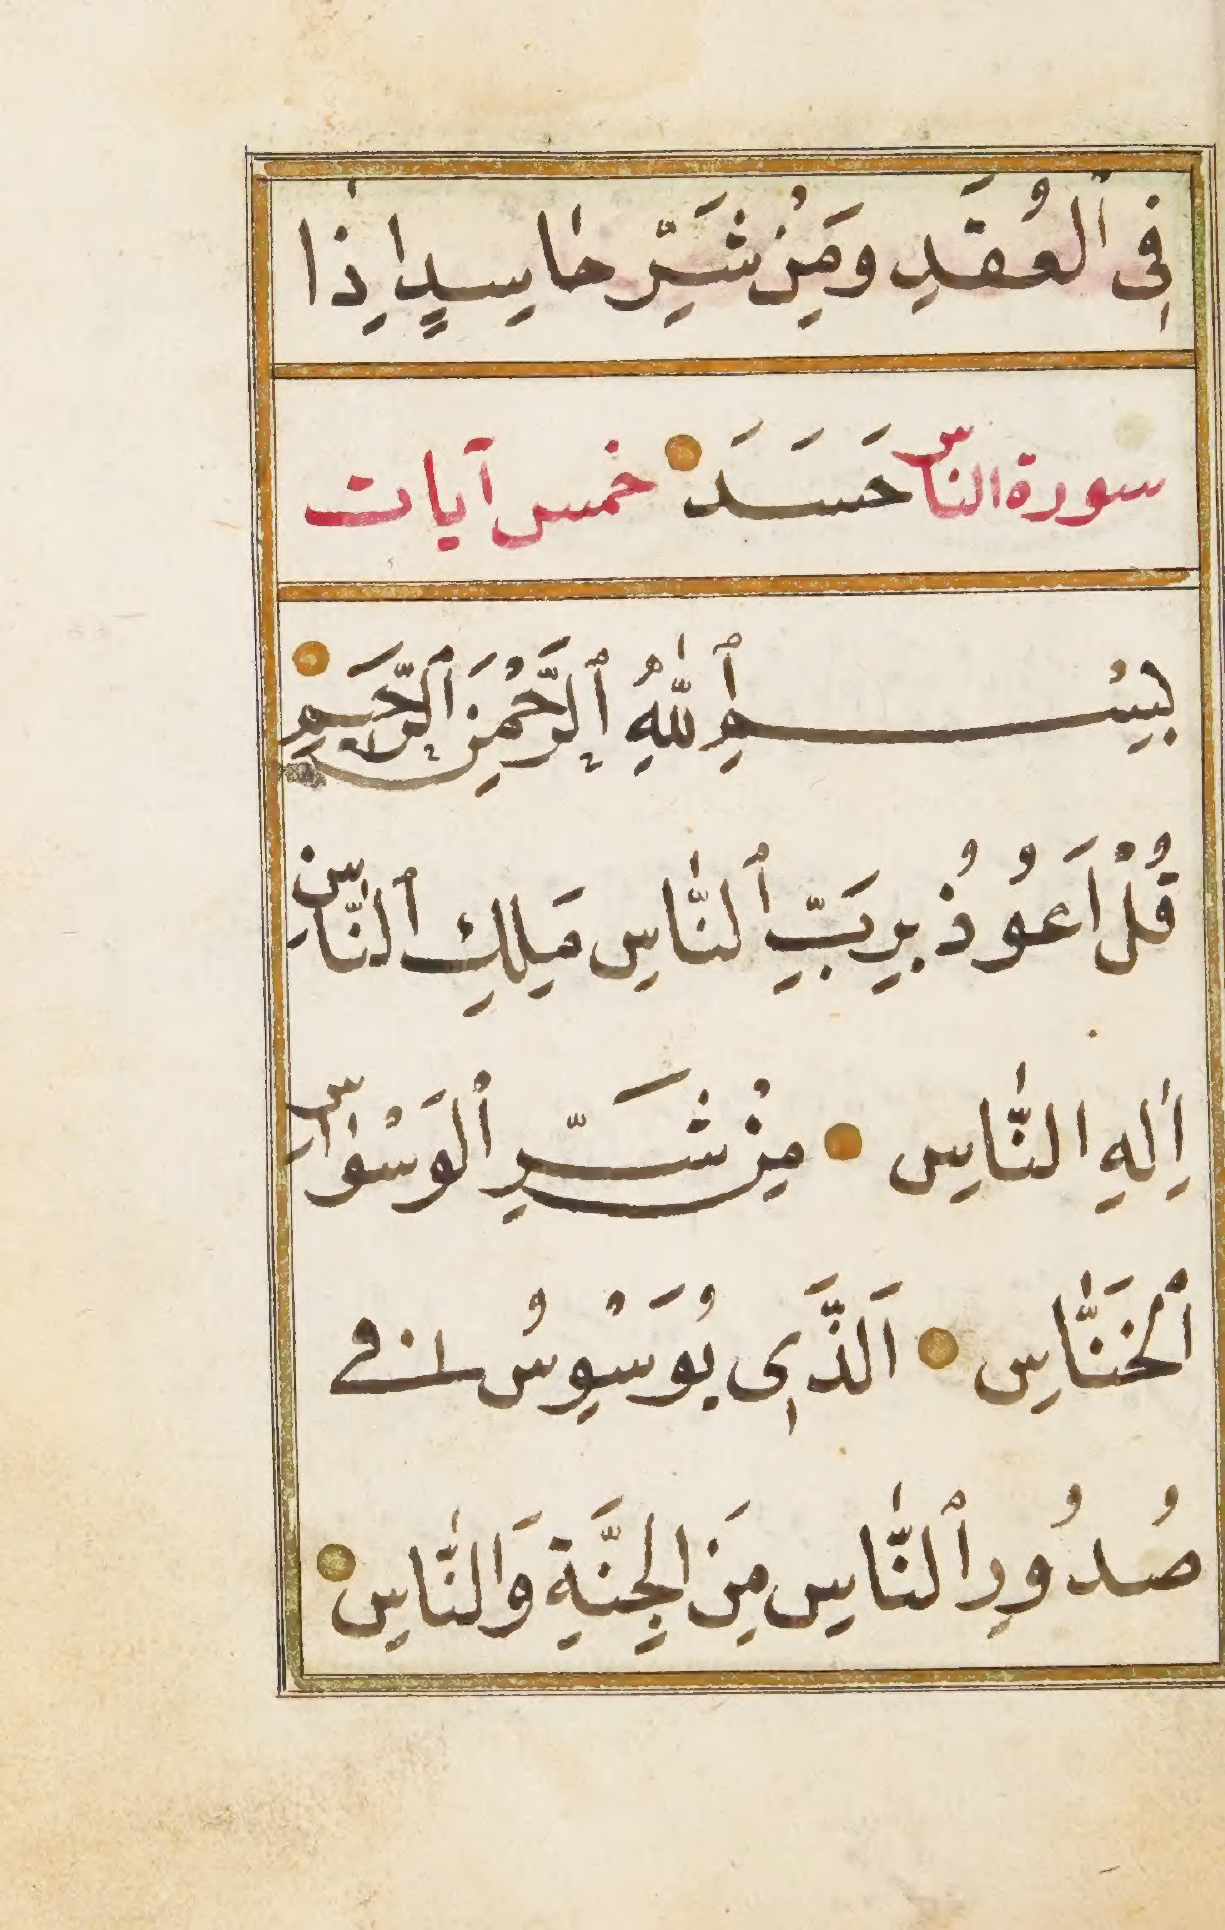 فِى ٱلْعُقَدِ وَمِنْ شَرِّ حَاسِدٍ اِذَا
سورة الناس حَسَدَ خمس آيات
بِسْمِ ٱللّٰهِ ٱلرَّحْمٰنِ ٱلرَّحِيمِ
قُلْ اَعُوذُ بِرَبِّ ٱلنَّاسِ مَلِكِ ٱلنَّاسِ
اِلٰهِ النَّاسِ مِنْ شَرِّ ٱلْوَسْوَاسِ
ٱلْخَنَّاسِ اَلَّذِى يُوَسْوِسُ فِى
صُدُورِ ٱلنَّاسِ مِنَ الْجِنَّةِ وَالنَّاسِ